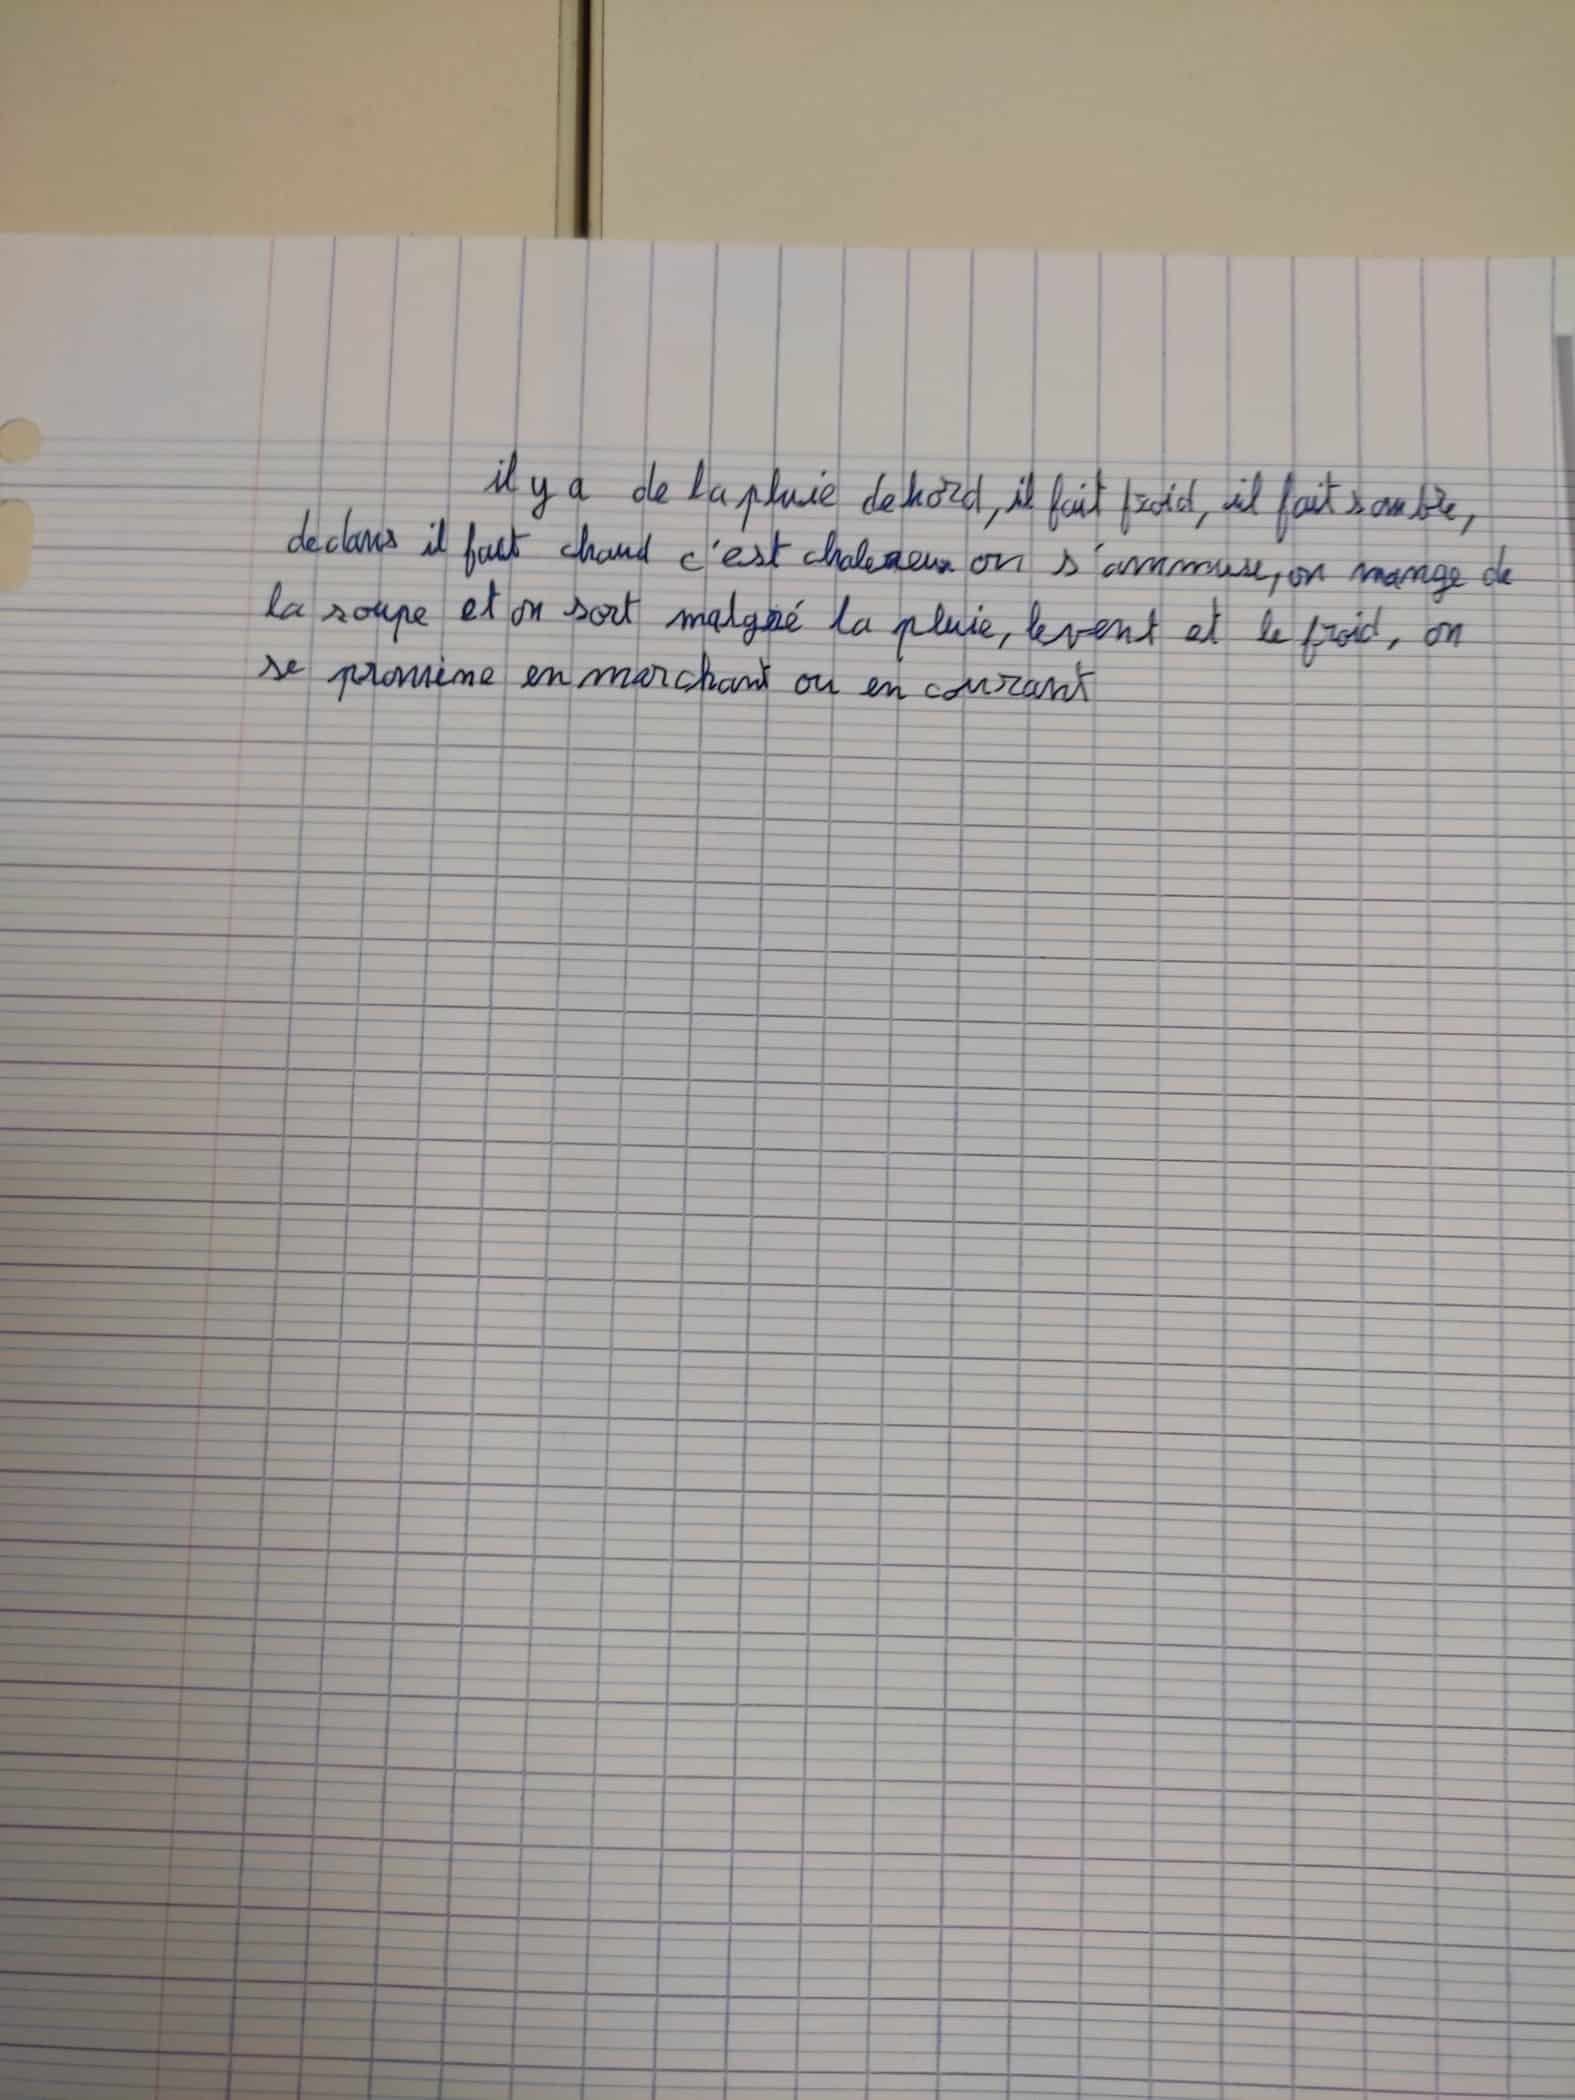 il y a de la pluie dehord, il fait froid, il fait sombre,
dedans il fait chaud c'est chalereux on s'ammuse, on mange de
la soupe et on sort malgré la pluie, le vent et le froid, on
se promène en marchant ou en courant